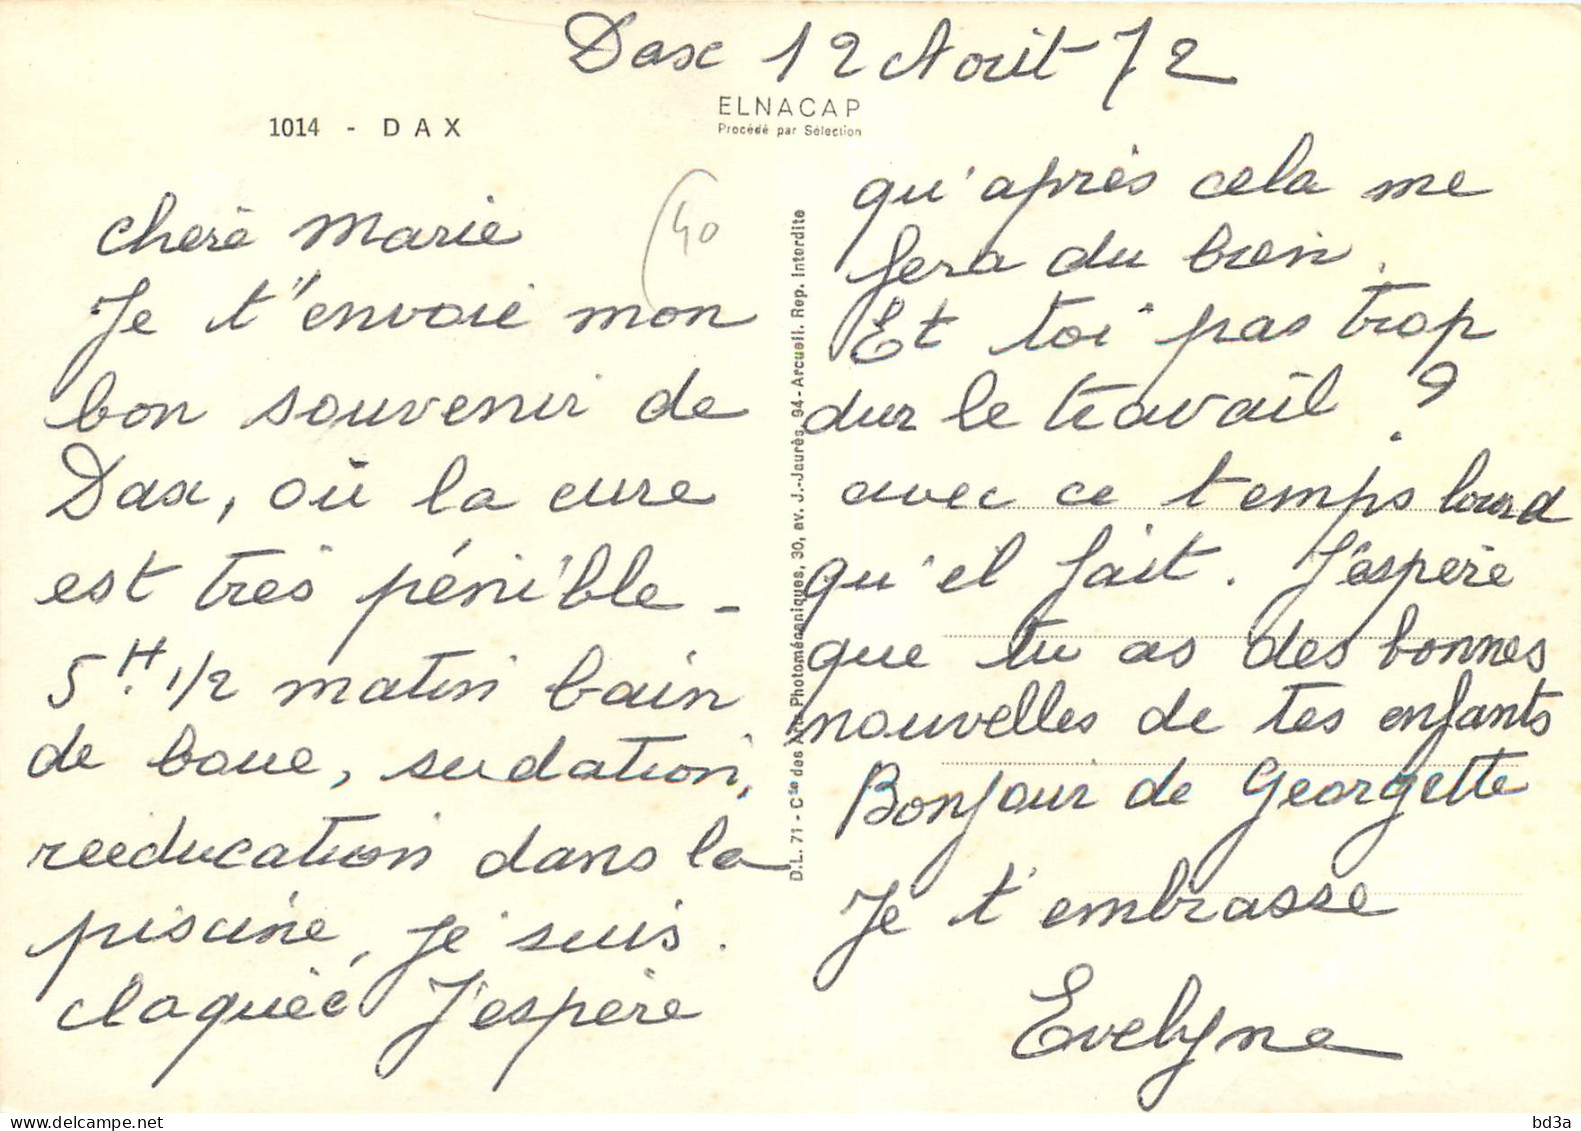 Dax 12 Août 72
1014 - DAX
ELNACAP
Procédé par Sélection
40
chère Marie
Je t'envoie mon
bon souvenir de
Dax, où la cure
est très pénible -
5 H. 1/2 matin bain
de boue, sudation,
rééducation dans la
piscine, je suis
claquée J'espère
D.L. 71 - Cie des Arts Photomécaniques, 30, av. J.-Jaurès, 94 - Arcueil. Rep. Interdite
qu'après cela me
fera du bien.
Et toi pas trop
dur le travail ?
avec ce temps lourd
qu'il fait. J'espère
que tu as des bonnes
nouvelles de tes enfants
Bonjour de Georgette
Je t'embrasse
Evelyne
bd3a